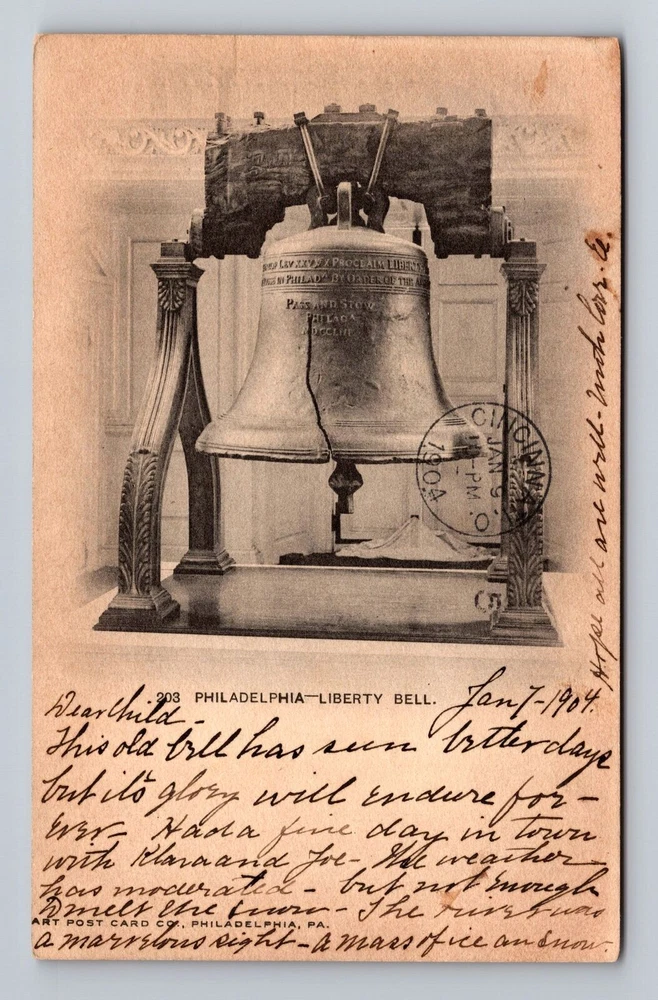 OF LEV XXV X PROCLAIM LIBERTY
IN PHILADA BY ORDER OF THE
PASS AND STOW
PHILADA
MDCCLIII
CINCINNATI, O.
JAN 9
-PM
1904
5
203 PHILADELPHIA—LIBERTY BELL.
Jan 7-1904.
Dear Child-
This old bell has seen better days
but it's glory will endure for-
ever- Had a fine day in town
with Klara and Joe- The weather
has moderated - but not enough
to melt the snow - The river was
ART POST CARD CO., PHILADELPHIA, PA.
a marvelous sight - a mass of ice an snow.
Hope all are well- with love. E.